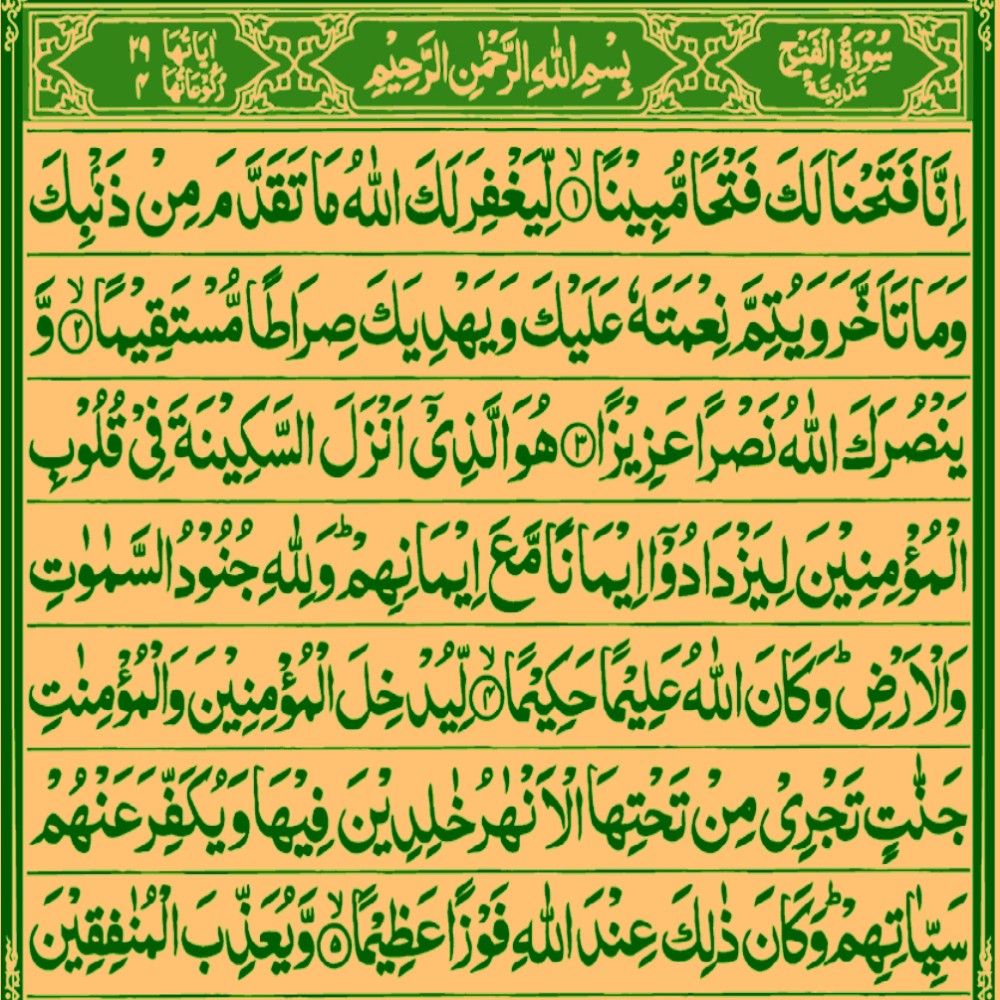 سُوْرَةُ الْفَتْحِ مَدَنِيَّةٌ
بِسْمِ اللّٰهِ الرَّحْمٰنِ الرَّحِيْمِ
اٰيَاتُهَا ٢٩ رُكُوْعَاتُهَا ٤
اِنَّا فَتَحْنَا لَكَ فَتْحًا مُّبِيْنًا ۙ‏﴿١﴾ لِّيَغْفِرَ لَكَ اللّٰهُ مَا تَقَدَّمَ مِنْ ذَنْۢبِكَ
وَمَا تَاَخَّرَ وَيُتِمَّ نِعْمَتَهٗ عَلَيْكَ وَيَهْدِيَكَ صِرَاطًا مُّسْتَقِيْمًا ۙ‏﴿٢﴾ وَّ
يَنْصُرَكَ اللّٰهُ نَصْرًا عَزِيْزًا ﴿٣﴾ هُوَ الَّذِيْۤ اَنْزَلَ السَّكِيْنَةَ فِيْ قُلُوْبِ
الْمُؤْمِنِيْنَ لِيَزْدَادُوْۤا اِيْمَانًا مَّعَ اِيْمَانِهِمْ ؕ وَلِلّٰهِ جُنُوْدُ السَّمٰوٰتِ
وَالْاَرْضِ ؕ وَكَانَ اللّٰهُ عَلِيْمًا حَكِيْمًا ۙ‏﴿٤﴾ لِّيُدْخِلَ الْمُؤْمِنِيْنَ وَالْمُؤْمِنٰتِ
جَنّٰتٍ تَجْرِيْ مِنْ تَحْتِهَا الْاَنْهٰرُ خٰلِدِيْنَ فِيْهَا وَيُكَفِّرَ عَنْهُمْ
سَيِّاٰتِهِمْ ؕ وَكَانَ ذٰلِكَ عِنْدَ اللّٰهِ فَوْزًا عَظِيْمًا ۙ‏﴿٥﴾ وَّيُعَذِّبَ الْمُنٰفِقِيْنَ